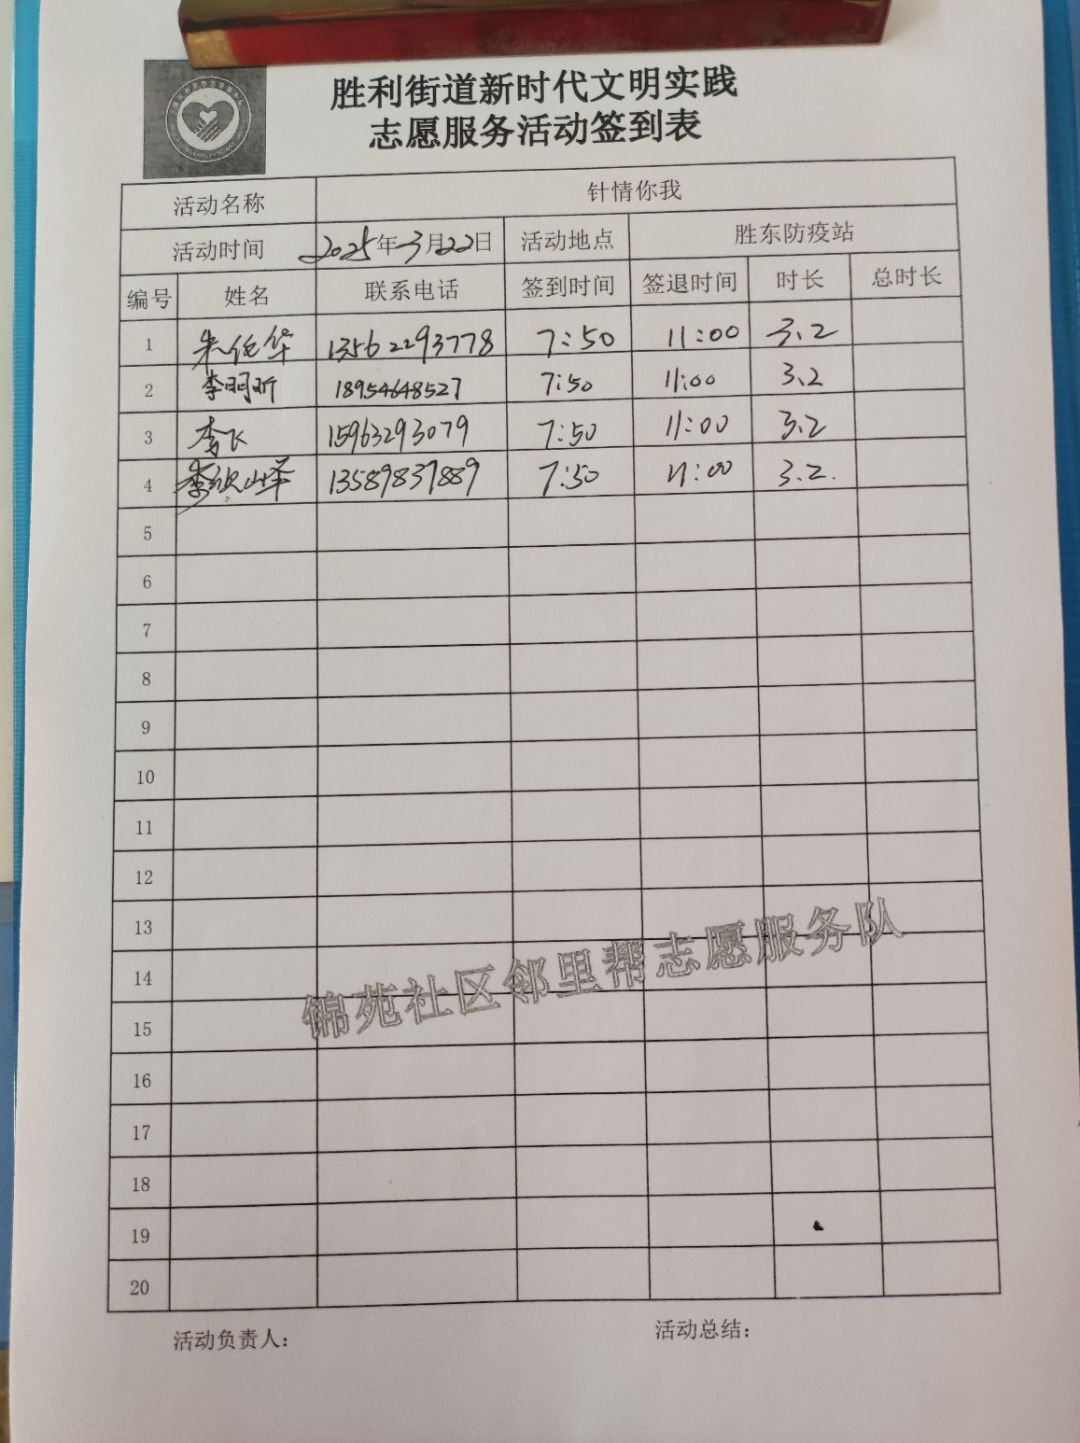 胜利街道新时代文明实践
志愿服务活动签到表
活动名称 针情你我
活动时间 2025年3月22日 活动地点 胜东防疫站
编号 姓名 联系电话 签到时间 签退时间 时长 总时长
1 朱传华 13562293778 7:50 11:00 3.2
2 李明昕 18954648527 7:50 11:00 3.2
3 李飞 15963293079 7:50 11:00 3.2
4 李 13589837889 7:50 11:00 3.2.
5
6
7
8
9
10
11
12
13
14
15
16
17
18
19
20
锦苑社区邻里帮志愿服务队
活动负责人: 活动总结: